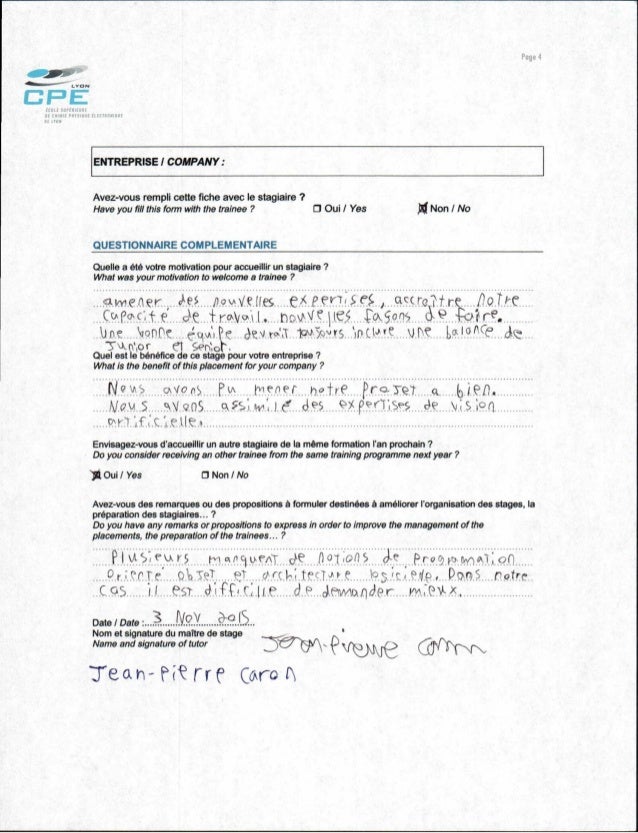 Page 4
LYON
CPE
ÉCOLE SUPÉRIEURE
DE CHIMIE PHYSIQUE ÉLECTRONIQUE
DE LYON
ENTREPRISE / COMPANY :
Avez-vous rempli cette fiche avec le stagiaire ?
Have you fill this form with the trainee ? Oui / Yes Non / No
QUESTIONNAIRE COMPLEMENTAIRE
Quelle a été votre motivation pour accueillir un stagiaire ?
What was your motivation to welcome a trainee ?
amener des nouvelles expertises, accroître notre
capacité de travail. nouvelles façons de faire.
Une bonne équipe devrait toujours inclure une balance de
Junior et Senior.
Quel est le bénéfice de ce stage pour votre entreprise ?
What is the benefit of this placement for your company ?
Nous avons pu mener notre projet a bien.
Nous avons assimilé des expertises de vision
artificielle.
Envisagez-vous d'accueillir un autre stagiaire de la même formation l'an prochain ?
Do you consider receiving an other trainee from the same training programme next year ?
Oui / Yes Non / No
Avez-vous des remarques ou des propositions à formuler destinées à améliorer l'organisation des stages, la
préparation des stagiaires... ?
Do you have any remarks or propositions to express in order to improve the management of the
placements, the preparation of the trainees... ?
Plusieurs manquent de notions de programmation
orienté objet et architecture logicielle. Dans notre
cas il est difficile de demander mieux.
Date / Date : 3 Nov 2015
Nom et signature du maître de stage
Name and signature of tutor
Jean-Pierre Caron
Jean-Pierre Caron